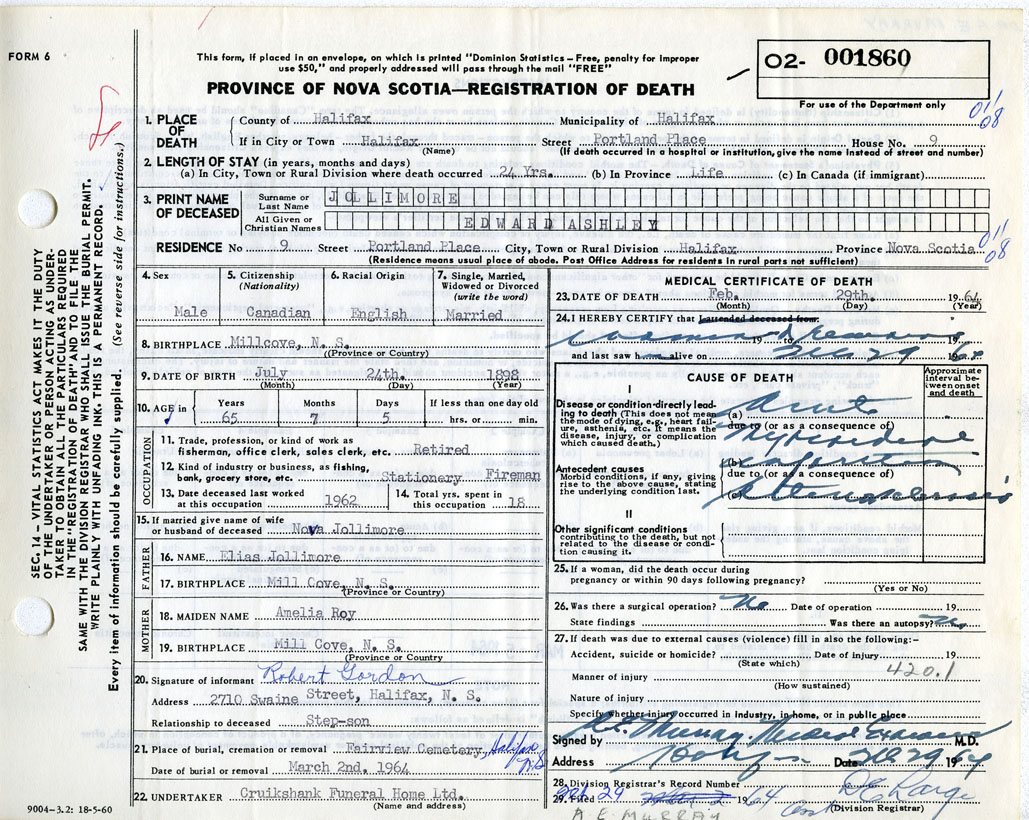 FORM 6
This form, if placed in an envelope, on which is printed "Dominion Statistics – Free, penalty for improper
use $50," and properly addressed will pass through the mail "FREE"
PROVINCE OF NOVA SCOTIA—REGISTRATION OF DEATH
O2- 001860
For use of the Department only
SEC. 14 – VITAL STATISTICS ACT MAKES IT THE DUTY
OF THE UNDERTAKER OR PERSON ACTING AS UNDER-
TAKER TO OBTAIN ALL THE PARTICULARS REQUIRED
IN THE "REGISTRATION OF DEATH" AND TO FILE THE
SAME WITH THE DIVISION REGISTRAR WHO SHALL ISSUE THE BURIAL PERMIT.
WRITE PLAINLY WITH UNFADING INK. THIS IS A PERMANENT RECORD.
Every item of information should be carefully supplied. (See reverse side for instructions.)
1. PLACE OF DEATH
County of Halifax Municipality of Halifax
If in City or Town Halifax Street Portland Place House No. 9
(Name) (If death occurred in a hospital or institution, give the name instead of street and number)
2. LENGTH OF STAY (in years, months and days)
(a) In City, Town or Rural Division where death occurred 24 Yrs. (b) In Province Life (c) In Canada (if immigrant)
3. PRINT NAME OF DECEASED
Surname or Last Name JOLLIMORE
All Given or Christian Names EDWARD ASHLEY
011/08
RESIDENCE No 9 Street Portland Place City, Town or Rural Division Halifax Province Nova Scotia
(Residence means usual place of abode. Post Office Address for residents in rural parts not sufficient)
011/08
4. Sex
Male
5. Citizenship
(Nationality)
Canadian
6. Racial Origin
English
7. Single, Married,
Widowed or Divorced
(write the word)
Married
8. BIRTHPLACE Millcove, N. S.
(Province or Country)
9. DATE OF BIRTH July 24th. 1898
(Month) (Day) (Year)
10. AGE in
Years Months Days If less than one day old
65 7 5 hrs. or min.
OCCUPATION
11. Trade, profession, or kind of work as
fisherman, office clerk, sales clerk, etc. Retired
12. Kind of industry or business, as fishing,
bank, grocery store, etc. Stationery Fireman
13. Date deceased last worked
at this occupation 1962
14. Total yrs. spent in
this occupation 18
15. If married give name of wife
or husband of deceased Nova Jollimore
FATHER
16. NAME Elias Jollimore
17. BIRTHPLACE Mill Cove, N. S.
(Province or Country)
MOTHER
18. MAIDEN NAME Amelia Roy
19. BIRTHPLACE Mill Cove, N. S.
(Province or Country)
20. Signature of informant Robert Gordon
Address 2710 Swaine Street, Halifax, N. S.
Relationship to deceased Step-son
21. Place of burial, cremation or removal Fairview Cemetery, Halifax N.S
Date of burial or removal March 2nd. 1964
22. UNDERTAKER Cruikshank Funeral Home Ltd.
(Name and address)
9004-3.2: 18-5-60
MEDICAL CERTIFICATE OF DEATH
23. DATE OF DEATH Feb. 29th. 1964
(Month) (Day) (Year)
24. I HEREBY CERTIFY that I attended deceased from:
19 to 19
and last saw him alive on Feb 29 1964
CAUSE OF DEATH
Approximate
interval be-
tween onset
and death
I
Disease or condition directly lead-
ing to death (This does not mean
the mode of dying, e.g., heart fail-
ure, asthenia, etc. It means the
disease, injury, or complication
which caused death.)
(a) Acute
due to (or as a consequence of)
Myocardial
Antecedent causes
Morbid conditions, if any, giving
rise to the above cause, stating
the underlying condition last.
(b) infarction
due to (or as a consequence of)
(c)
II
Other significant conditions
contributing to the death, but not
related to the disease or condi-
tion causing it.
25. If a woman, did the death occur during
pregnancy or within 90 days following pregnancy?
(Yes or No)
26. Was there a surgical operation? No Date of operation 19
State findings Was there an autopsy? No
27. If death was due to external causes (violence) fill in also the following:–
Accident, suicide or homicide? Date of injury 19
(State which)
Manner of injury 420.1
(How sustained)
Nature of injury
Specify whether injury occurred in industry, in home, or in public place
Signed by A.E. Murray Medical Examiner M.D.
Address Date Feb 29 1964
28. Division Registrar's Record Number
29. Filed 1964
(Division Registrar)
A.E. MURRAY